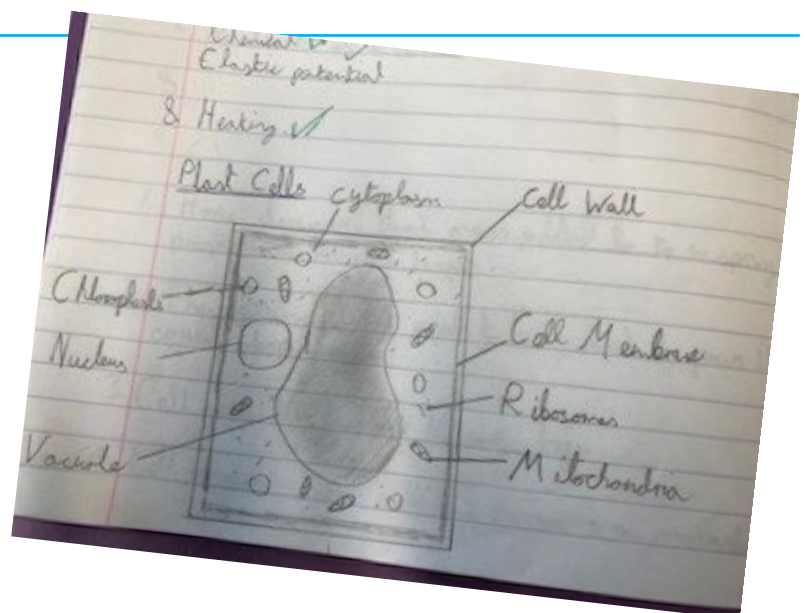 Chemical
Elastic potential
& Heating
Plant Cells
Cytoplasm
Cell Wall
Chloroplasts
Nucleus
Cell Membrane
Ribosomes
Vacuole
Mitochondria